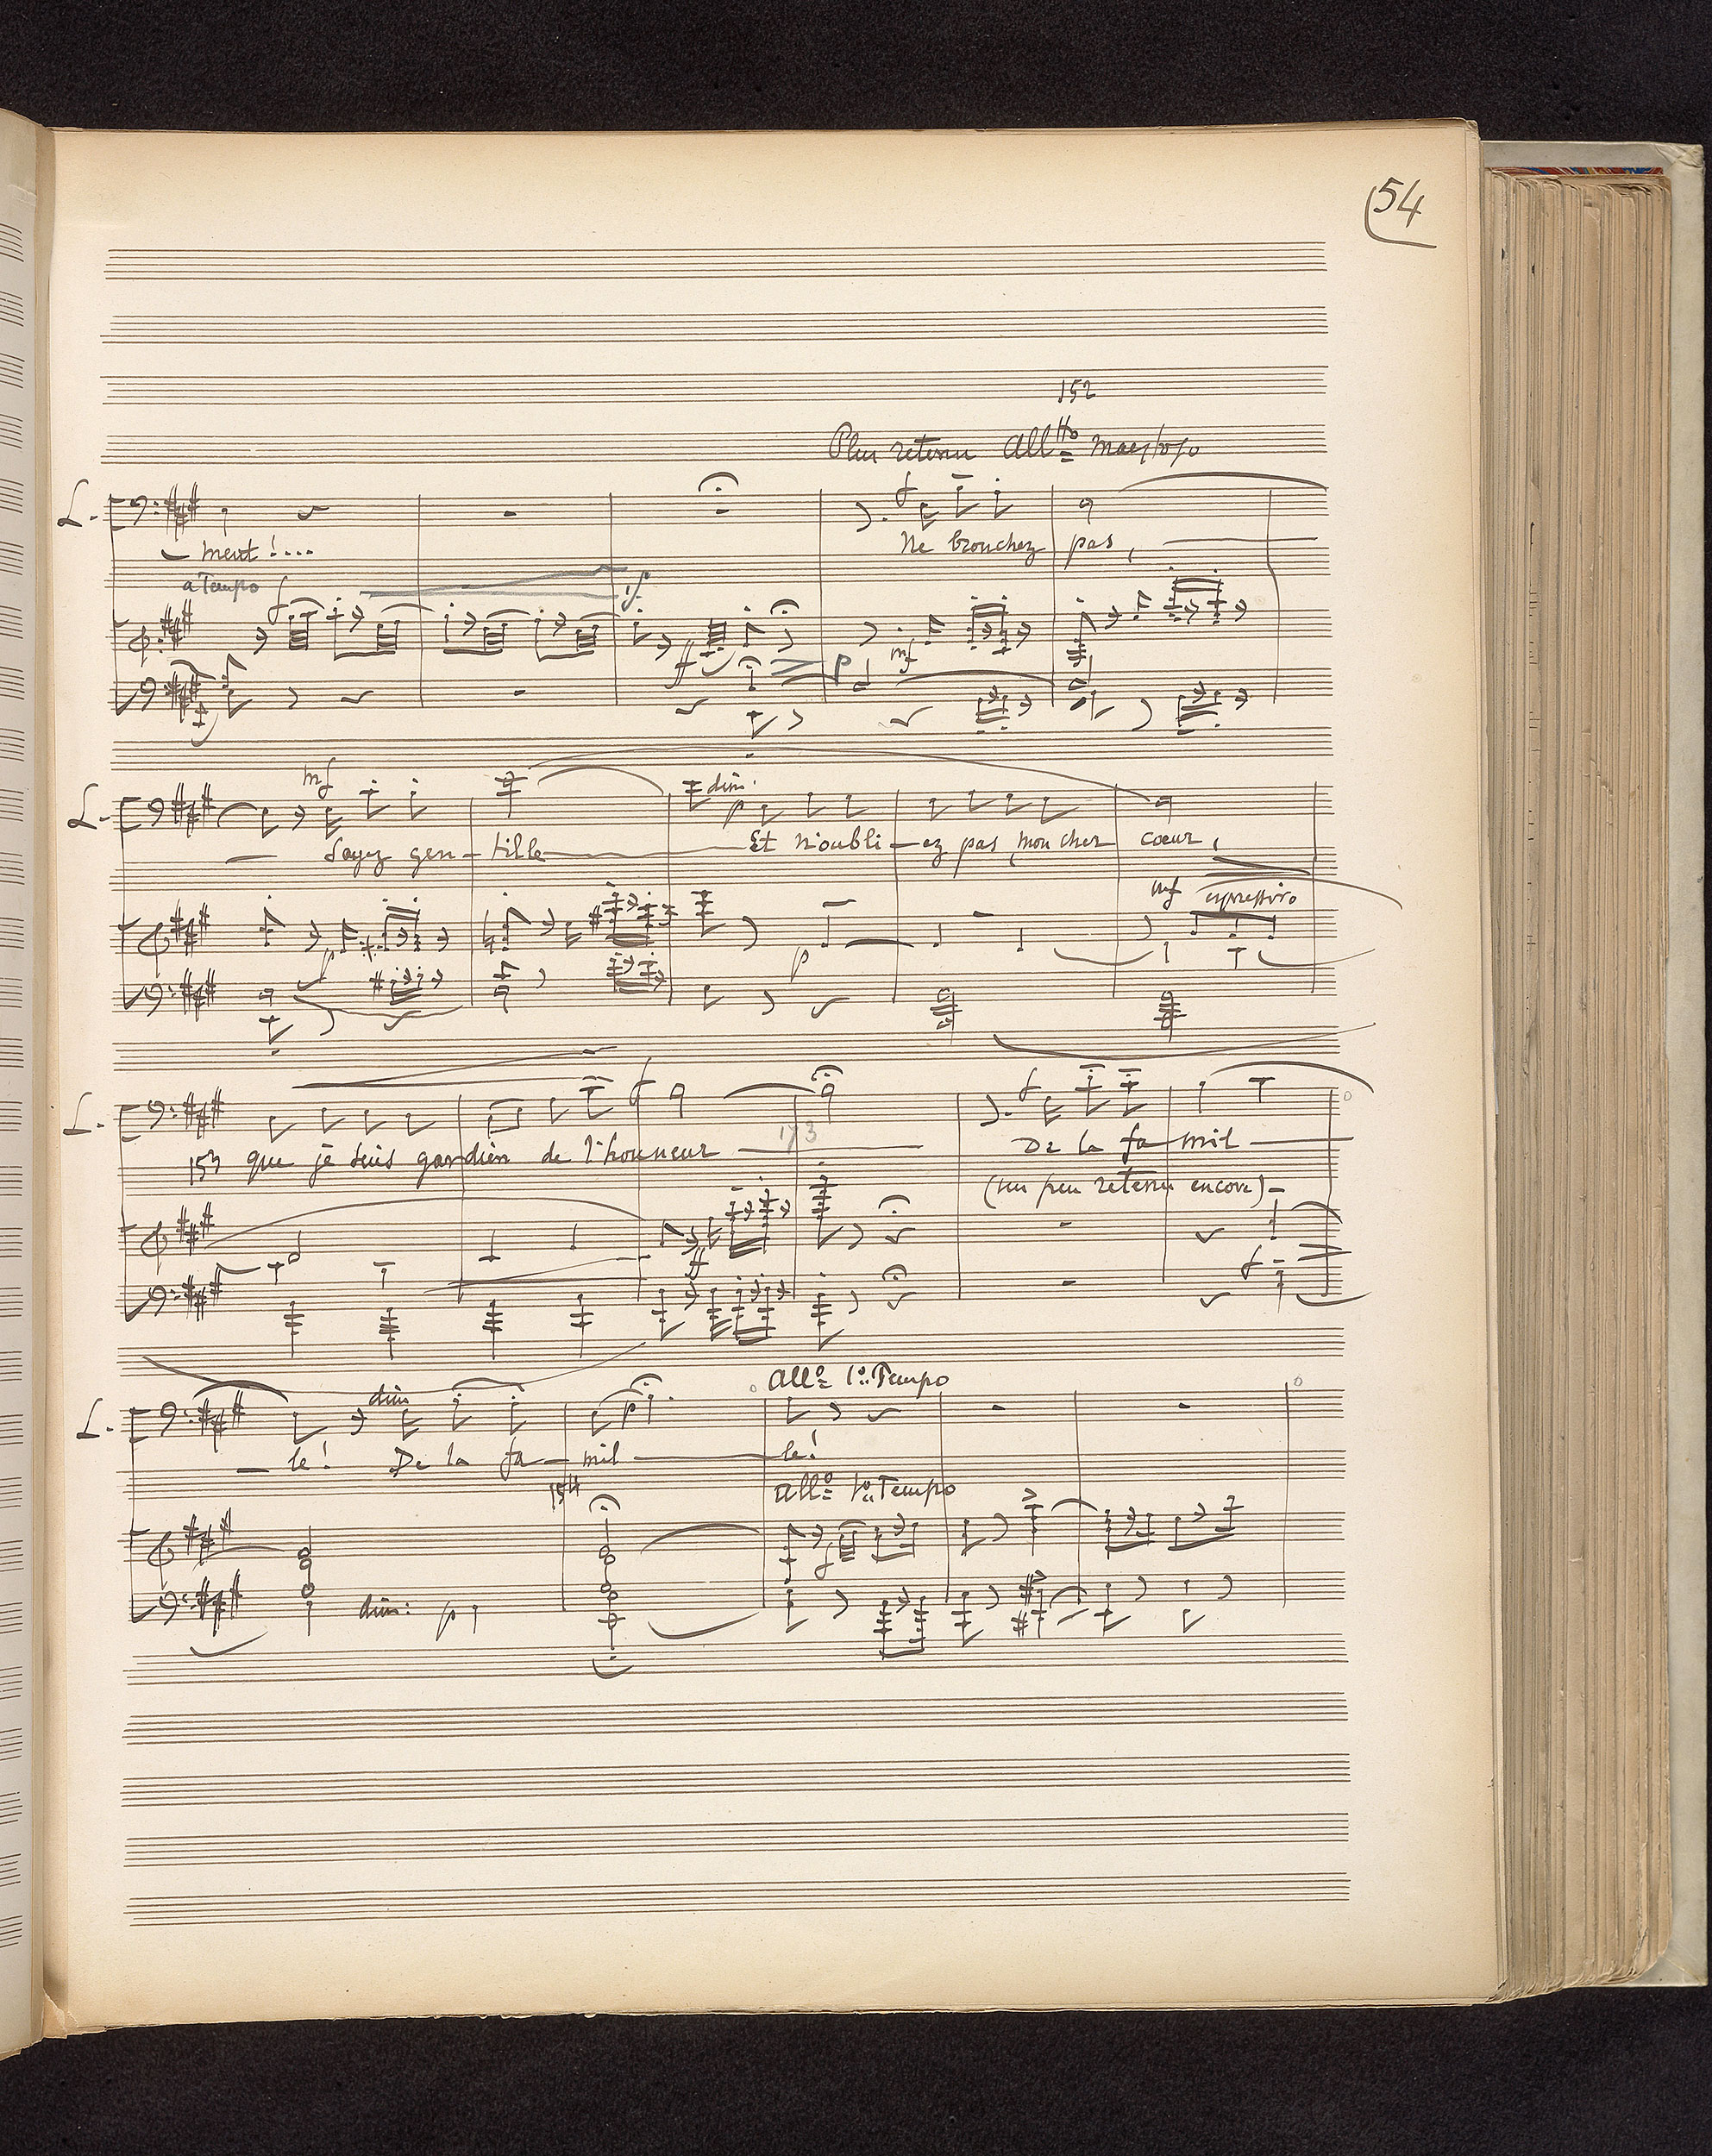 54
152
Plus retenu All^tto maestoso
L.
f
— ment!... Ne bronchez pas,
a Tempo f
ff mf
p
L. mf dim. p
— Soyez gen — tille — Et n'oubli — ez pas mon cher cœur,
mf espressivo
f p
L. f f
153 que je suis gardien de l'honneur — 173 De la fa — mil —
(un peu retenu encore) —
ff f
All° 1° Tempo
L. dim p
— le! De la fa — mil — le!
154 all° 1° Tempo
f
dim: p